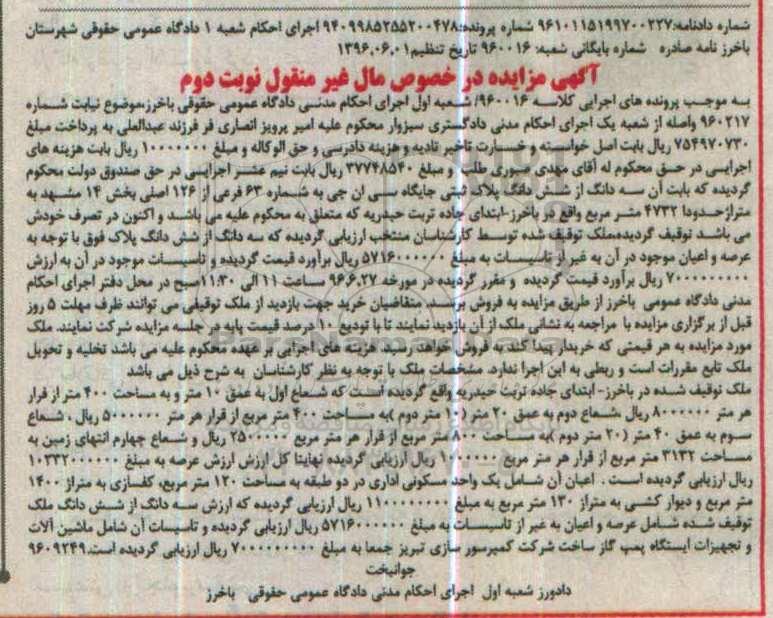 شماره دادنامه:۹۶۱۰۱۱۵۱۹۹۷۰۰۲۲۷ شماره پرونده:۹۴۰۹۹۸۵۲۵۵۲۰۰۴۷۸ اجرای احکام شعبه ۱ دادگاه عمومی حقوقی شهرستان
باخرز نامه صادره شماره بایگانی شعبه: ۹۶۰۰۱۶ تاریخ تنظیم ۱۳۹۶،۰۶،۰۱
آگهی مزایده در خصوص مال غیر منقول نوبت دوم
به موجب پرونده های اجرایی کلاسه ۹۶۰۰۱۶/ شعبه اول اجرای احکام مدنی دادگاه عمومی حقوقی باخرز،موضوع نیابت شماره
۹۶۰۲۱۷ واصله از شعبه یک اجرای احکام مدنی دادگستری سبزوار محکوم علیه امیر پرویز انصاری فر فرزند عبدالعلی به پرداخت مبلغ
۷۵۴۹۷۰۷۳۰ ریال بابت اصل خواسته و خسارت تاخیر تادیه و هزینه دادرسی و حق الوکاله و مبلغ ۱۰۰۰۰۰۰۰ ریال بابت هزینه های
اجرایی در حق محکوم له آقای مهدی صبوری طلب و مبلغ ۳۷۷۴۸۵۴۰ ریال بابت نیم عشر اجرایی در حق صندوق دولت محکوم
گردیده که بابت آن سه دانگ از شش دانگ پلاک ثبتی جایگاه سی ان جی به شماره ۶۳ فرعی از ۱۲۶ اصلی بخش ۱۴ مشهد به
متراژحدودا ۴۷۳۲ متر مربع واقع در باخرز-ابتدای جاده تربت حیدریه که متعلق به محکوم علیه می باشد و اکنون در تصرف خودش
می باشد توقیف گردیده،ملک توقیف شده توسط کارشناسان منتخب ارزیابی گردیده که سه دانگ از شش دانگ پلاک فوق با توجه به
عرصه و اعیان موجود در آن به غیر از تاسیسات به مبلغ ۵۷۱۶۰۰۰۰۰۰ ریال برآورد قیمت گردیده و تاسیسات موجود در آن به ارزش
۷۰۰۰۰۰۰۰۰۰ ریال برآورد قیمت گردیده و مقرر گردیده در مورخه ۹۶،۶،۲۷ ساعت ۱۱ الی ۱۱،۳۰صبح در محل دفتر اجرای احکام
مدنی دادگاه عمومی باخرز از طریق مزایده به فروش برسد. متقاضیان خرید جهت بازدید از ملک توقیفی می توانند ظرف مهلت ۵ روز
قبل از برگزاری مزایده با مراجعه به نشانی ملک از آن بازدید نمایند تا با تودیع ۱۰ درصد قیمت پایه در جلسه مزایده شرکت نمایند. ملک
مورد مزایده به هر قیمتی که خریدار پیدا کند به فروش خواهد رسید. هزینه های اجرایی بر عهده محکوم علیه می باشد تخلیه و تحویل
ملک تابع مقررات است و ربطی به این اجرا ندارد. مشخصات ملک با توجه به نظر کارشناسان به شرح ذیل می باشد
ملک توقیف شده در باخرز- ابتدای جاده تربت حیدریه واقع گردیده است که شعاع اول به عمق ۱۰ متر و به مساحت ۴۰۰ متر از قرار
هر متر ۸۰۰۰۰۰۰ ریال ،شعاع دوم به عمق ۲۰ متر (۱۰ متر دوم )به مساحت ۴۰۰ متر مربع از قرار هر متر ۵۰۰۰۰۰۰ ریال ، شعاع
سوم به عمق ۴۰ متر (۲۰ متر دوم )به مساحت ۸۰۰ متر مربع از قرار هر متر مربع ۲۵۰۰۰۰۰ ریال و شعاع چهارم انتهای زمین به
مساحت ۳۱۳۲ متر مربع از قرار هر متر مربع ۱۰۰۰۰۰۰ ریال ارزیابی گردیده نهایتا کل ارزش ارزش عرصه به مبلغ ۱۰۳۳۲۰۰۰۰۰۰
ریال ارزیابی گردیده است . اعیان آن شامل یک واحد مسکونی اداری در دو طبقه به مساحت ۱۲۰ متر مربع، کفسازی به متراژ ۱۴۰۰
متر مربع و دیوار کشی به متراژ ۱۳۰ متر مربع به مبلغ ۱۱۰۰۰۰۰۰۰۰ ریال ارزیابی گردیده که ارزش سه دانگ از شش دانگ ملک
توقیف شده شامل عرصه و اعیان به غیر از تاسیسات به مبلغ ۵۷۱۶۰۰۰۰۰۰ ریال ارزیابی گردیده و تاسیسات آن شامل ماشین آلات
و تجهیزات ایستگاه پمپ گاز ساخت شرکت کمپرسور سازی تبریز جمعا به مبلغ ۷۰۰۰۰۰۰۰۰۰ ریال ارزیابی گردیده است.۹۶۰۹۲۴۹
جوانبخت
دادورز شعبه اول اجرای احکام مدنی دادگاه عمومی حقوقی باخرز